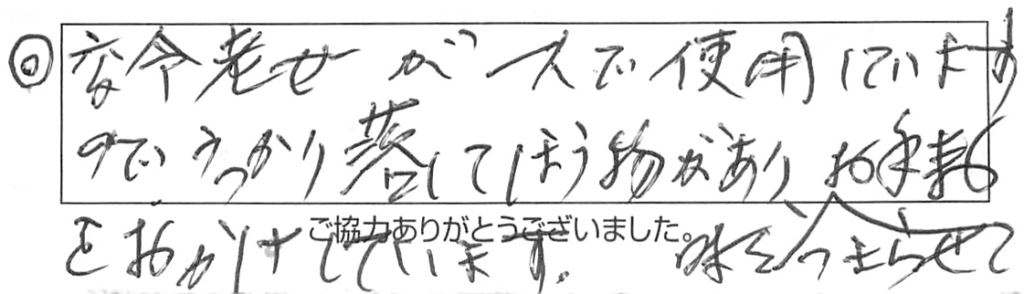 ◎ 高令老女が一人で使用しています
のでうっかり落してしまう物があり お手数
ご協力ありがとうございました。
をおかけしています. 水をつまらせて